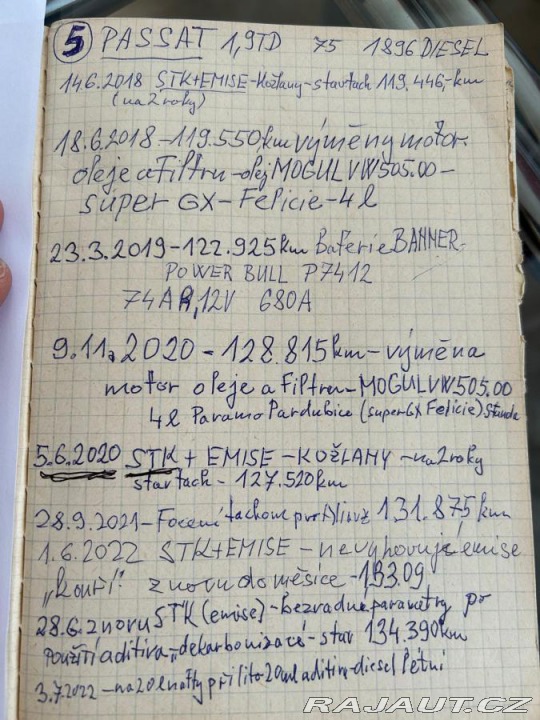 5 PASSAT 1,9TD 75 1896 DIESEL
14.6.2018 STK+EMISE-Kožlany-stavtach 119.446,-km
(na 2 roky)
18.6.2018-119.550km výměny motor.
oleje a Filtru-olej MOGUL VW505.00-
súper GX-Felicie-4l
23.3.2019-122.925km Baterie BANNER-
POWER BULL P7412
74AH,12V 680A
9.11.2020-128.815km-výměna
motor oleje a Filtru-MOGUL VW505.00
4l Paramo Pardubice (super GX Felicie) Standa
5.6.2020 STK + EMISE-KOŽLANY-na 2 roky
stav tach-127.520km
28.9.2021-Focení tachom. 131.875 km
1.6.2022 STK+EMISE-nevyhovující emise
"kouří" znovu do měsíce-
28.6. znovu STK (emise)-bezvadné parametry po
použití aditiva-dekarbonizace-stav 134.390km
3.7.2022-na 20l nafty přilito 20ml aditiv-diesel létní
RAJAUT.CZ